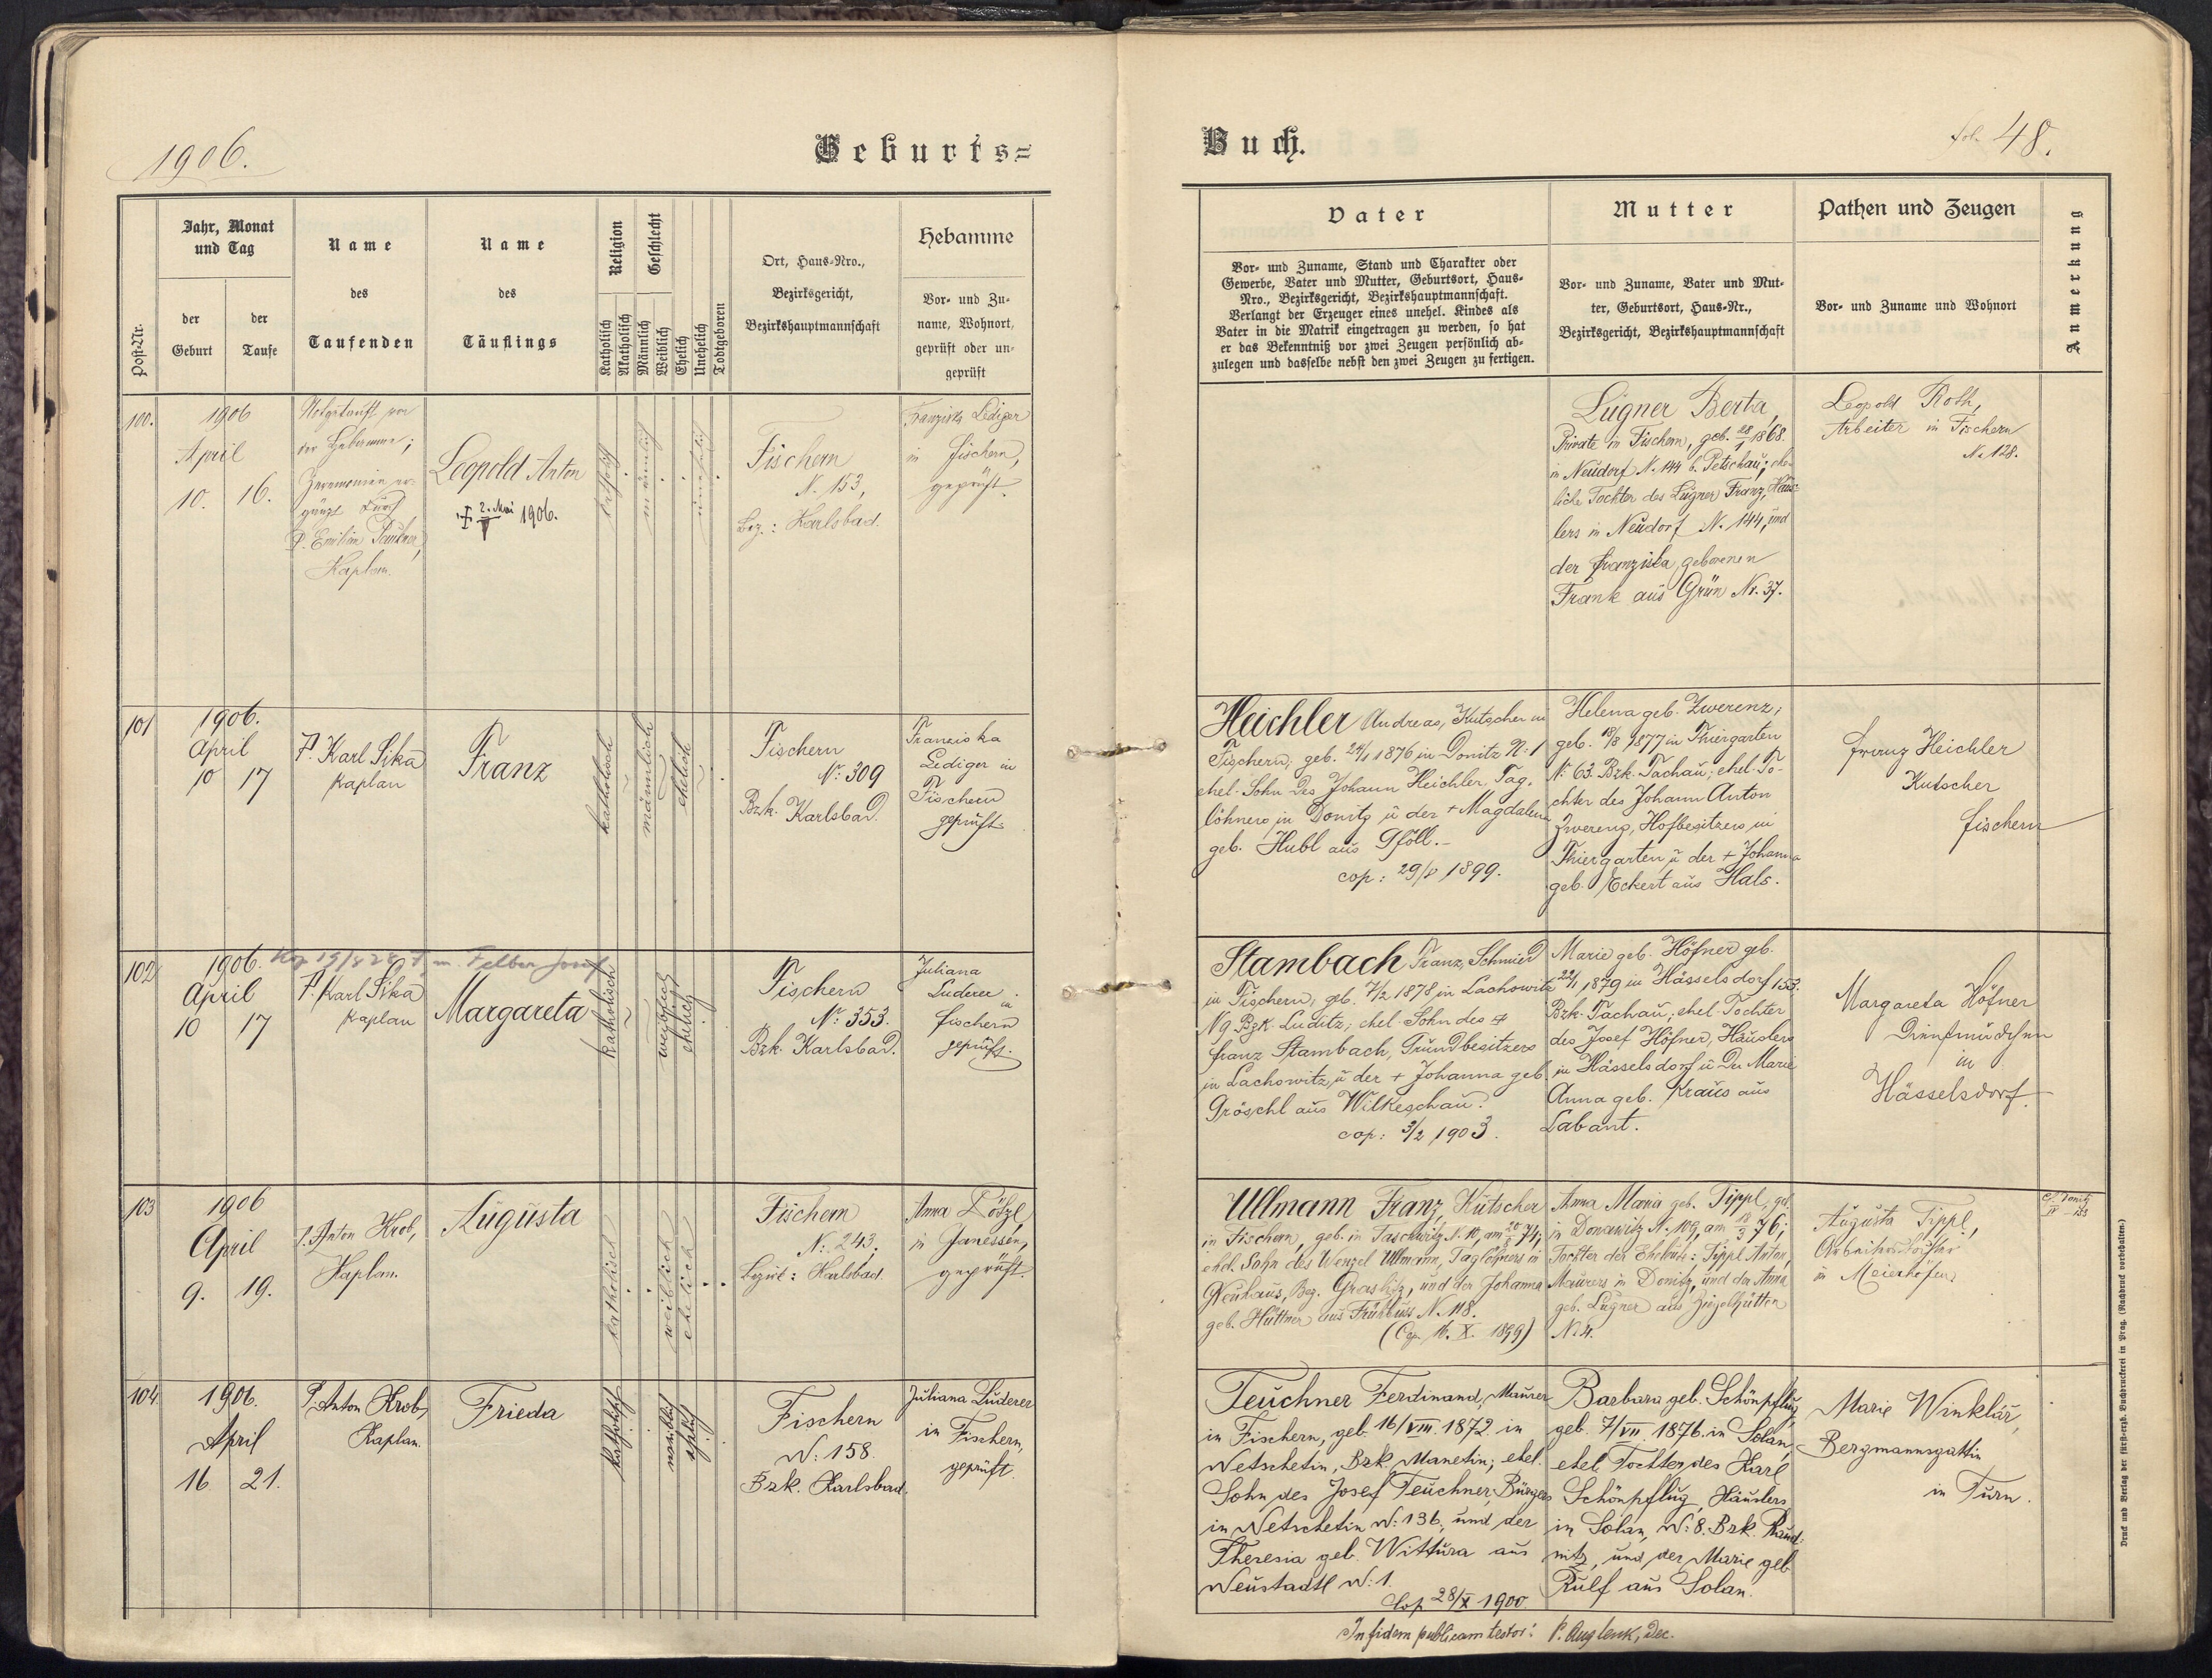 1906.
Geburts=
Post-Nr.
Jahr, Monat
und Tag
der
Geburt
der
Taufe
Name
des
Taufenden
Name
des
Täuflings
Religion
Katholisch
Akatholisch
Geschlecht
Männlich
Weiblich
Ehelich
Unehelich
Todtgeboren
Ort, Haus-Nro.,
Bezirksgericht,
Bezirkshauptmannschaft
Hebamme
Vor- und Zu-
name, Wohnort,
geprüft oder un-
geprüft
100.
1906
April
10. 16.
Notgetauft von
der Hebamme;
Zeremonien er-
gänzt durch
P. Emilian Paukner,
Kaplan.
Leopold Anton
† 2. Mai 1906.
katholisch
männlich
unehelich
Fischern
N. 153,
Bez.: Karlsbad.
Franziska Lediger
in Fischern,
geprüft.
101
1906.
April
10 17
P. Karl Sika
Kaplan
Franz
katholisch
männlich
ehelich
Fischern
N: 309
Bzk. Karlsbad.
Franciska
Lediger in
Fischern
geprüft.
102
1906.
April
10 17
m. Felber Josef
P. Karl Sika
Kaplan
Margareta
katholisch
weiblich
ehelich
Fischern
N: 353.
Bzk. Karlsbad.
Juliana
Luderer
in
Fischern
geprüft.
103
1906
April
9. 19.
P. Anton Krob,
Kaplan.
Augusta
katholisch
weiblich
ehelich
Fischern
N: 243,
Bezirk: Karlsbad.
Anna Pötzl,
in Janessen,
geprüft.
104.
1906.
April
16 21.
P. Anton Krob,
Kaplan.
Frieda
katholisch
weiblich
ehelich
Fischern
N: 158.
Bzk. Karlsbad.
Juliana Luderer
in Fischern,
geprüft.
Buch.
fol. 48.
Vater
Vor- und Zuname, Stand und Charakter oder
Gewerbe, Vater und Mutter, Geburtsort, Haus-
Nro., Bezirksgericht, Bezirkshauptmannschaft.
Verlangt der Erzeuger eines unehel. Kindes als
Vater in die Matrik eingetragen zu werden, so hat
er das Bekenntniß vor zwei Zeugen persönlich ab-
zulegen und dasselbe nebst den zwei Zeugen zu fertigen.
Mutter
Vor- und Zuname, Vater und Mut-
ter, Geburtsort, Haus-Nr.,
Bezirksgericht, Bezirkshauptmannschaft
Pathen und Zeugen
Vor- und Zuname und Wohnort
Anmerkung
Lugner Berta,
Private in Fischern, geb. 28/1 1868.
in Neudorf N. 144 b. Petschau; ehe-
liche Tochter des Lugner Franz, Häus-
lers in Neudorf N. 144, und
der Franziska, geborenen
Frank aus Grün Nr. 37.
Leopold Roth,
Arbeiter in Fischern
N. 128.
Heichler Andreas, Kutscher in
Fischern; geb. 24/1 1876 in Donitz N: 1
ehel. Sohn des Johann Heichler, Tag-
löhners in Donitz u der + Magdalena
geb. Hubl aus Pföll.-
cop: 29/8 1899.
Helena geb. Zwerenz;
geb. 18/8 1877 in Thiergarten
N: 63. Bzk. Tachau; ehel. To-
chter des Johann Anton
Zwerenz, Hofbesitzers in
Thiergarten u der + Johanna
geb. Eckert aus Hals.
Franz Heichler
Kutscher
Fischern
Stambach Franz, Schmied
in Fischern; geb. 7/2 1878 in Lachowitz
N 9 Bzk. Luditz; ehel. Sohn des +
Franz Stambach, Grundbesitzers
in Lachowitz, u der + Johanna geb.
Gröschl aus Wilkeschau.
cop: 3/2 1903.
Marie geb. Höfner geb.
22/1 1879 in Hässelsdorf 153.
Bzk. Tachau; ehel. Tochter
des Josef Höfner, Häuslers
in Hässelsdorf u der Marie
Anna geb. Kraus aus
Labant.
Margareta Höfner
Dienstmädchen
in
Hässelsdorf.
Ullmann Franz, Kutscher
in Fischern, geb. in Taschwitz N. 10, am 20/5 74,
ehel. Sohn des Wenzel Ullmann, Taglöhners in
Neuhaus, Bez. Graslitz, und der Johanna
geb. Hüttner aus Frühbuss N. 118.
(Cop. 16. X. 1899)
Anna Maria geb. Tippl, geb.
in Donawitz N. 109, am 18/3 76;
Tochter der Eheleute: Tippl Anton,
Maurers in Donitz, und der Anna
geb. Lugner aus Ziegelhütten
N: 4.
Augusta Tippl,
Arbeiterstochter
in Meierhöfen.
Teuchner Ferdinand, Maurer
in Fischern, geb. 16/VIII. 1872. in
Netschetin, Bzk. Manetin; ehel.
Sohn des Josef Teuchner, Bürgers
in Netschetin N: 136., und der
Theresia geb. Wittura aus
Neustadtl N: 1.
Cop 28/X 1900.
Barbara geb. Schönpflug,
geb. 7/VII. 1876. in Solan,
ehel. Tochter des Karl
Schönpflug, Häuslers
in Solan, N: 8. Bzk. Raud-
nitz, und der Marie geb.
Rulf aus Solan.
Marie Winklár,
Bergmannsgattin
in Turn.
In fidem publicam testor: P. Auglenk, Dec.
Druck und Verlag der fürst-erzb. Buchdruckerei in Prag. (Nachdruck vorbehalten.)